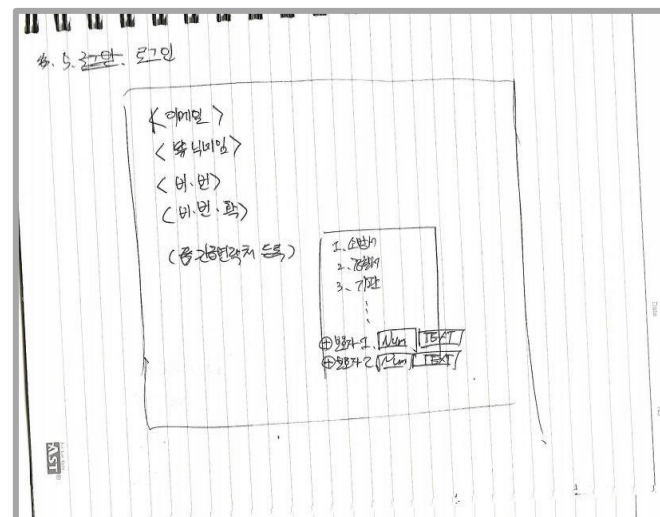 5. 로그인
<이메일>
<닉네임>
<비.번>
<비.번.확>
(긴급연락처 등록)
1. 소방서
2. 경찰서
3. 기관
⊕보호자 1. Num TEXT
⊕보호자 2 Num TEXT
Date